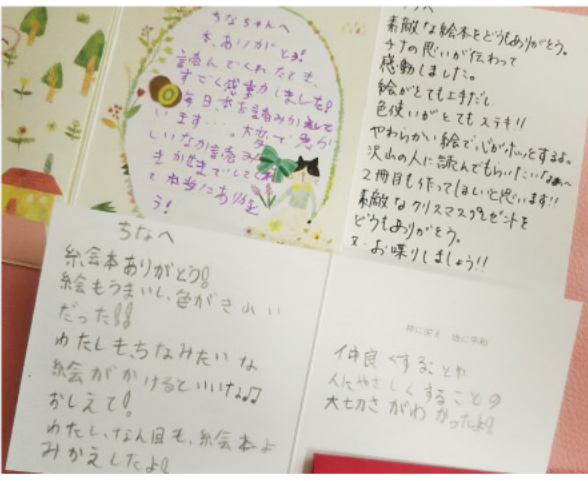 ちなちゃんへ
本、ありがとう!
読んでくれたとき、
すごく感動しました!
毎日本を読みか
います…。大
しいなか読み
きかせまでしてくれ
て本当にありがと
う!
へ
素敵な絵本をどうもありがとう。
チナの思いが伝わって
感動しました。
絵がとても上手だし
色使いがとてもステキ!!
やわらかい絵で心がホッとするよ。
沢山の人に読んでもらいたいなぁ〜
2冊目も作ってほしいと思います!!
素敵なクリスマスプレゼントを
どうもありがとう。
又、お喋りしましょう!!
ちなへ
絵本ありがとう!
絵もうまいし、色がきれい
だった!!
わたしも、ちなみたいな
絵ががかけるといいな♫
おしえて!
わたし、なん回も、絵本よ
みかえしたよ!
神に栄え 地に平和
仲良くすることや
人にやさしくすることの
大切さがわかったよ!